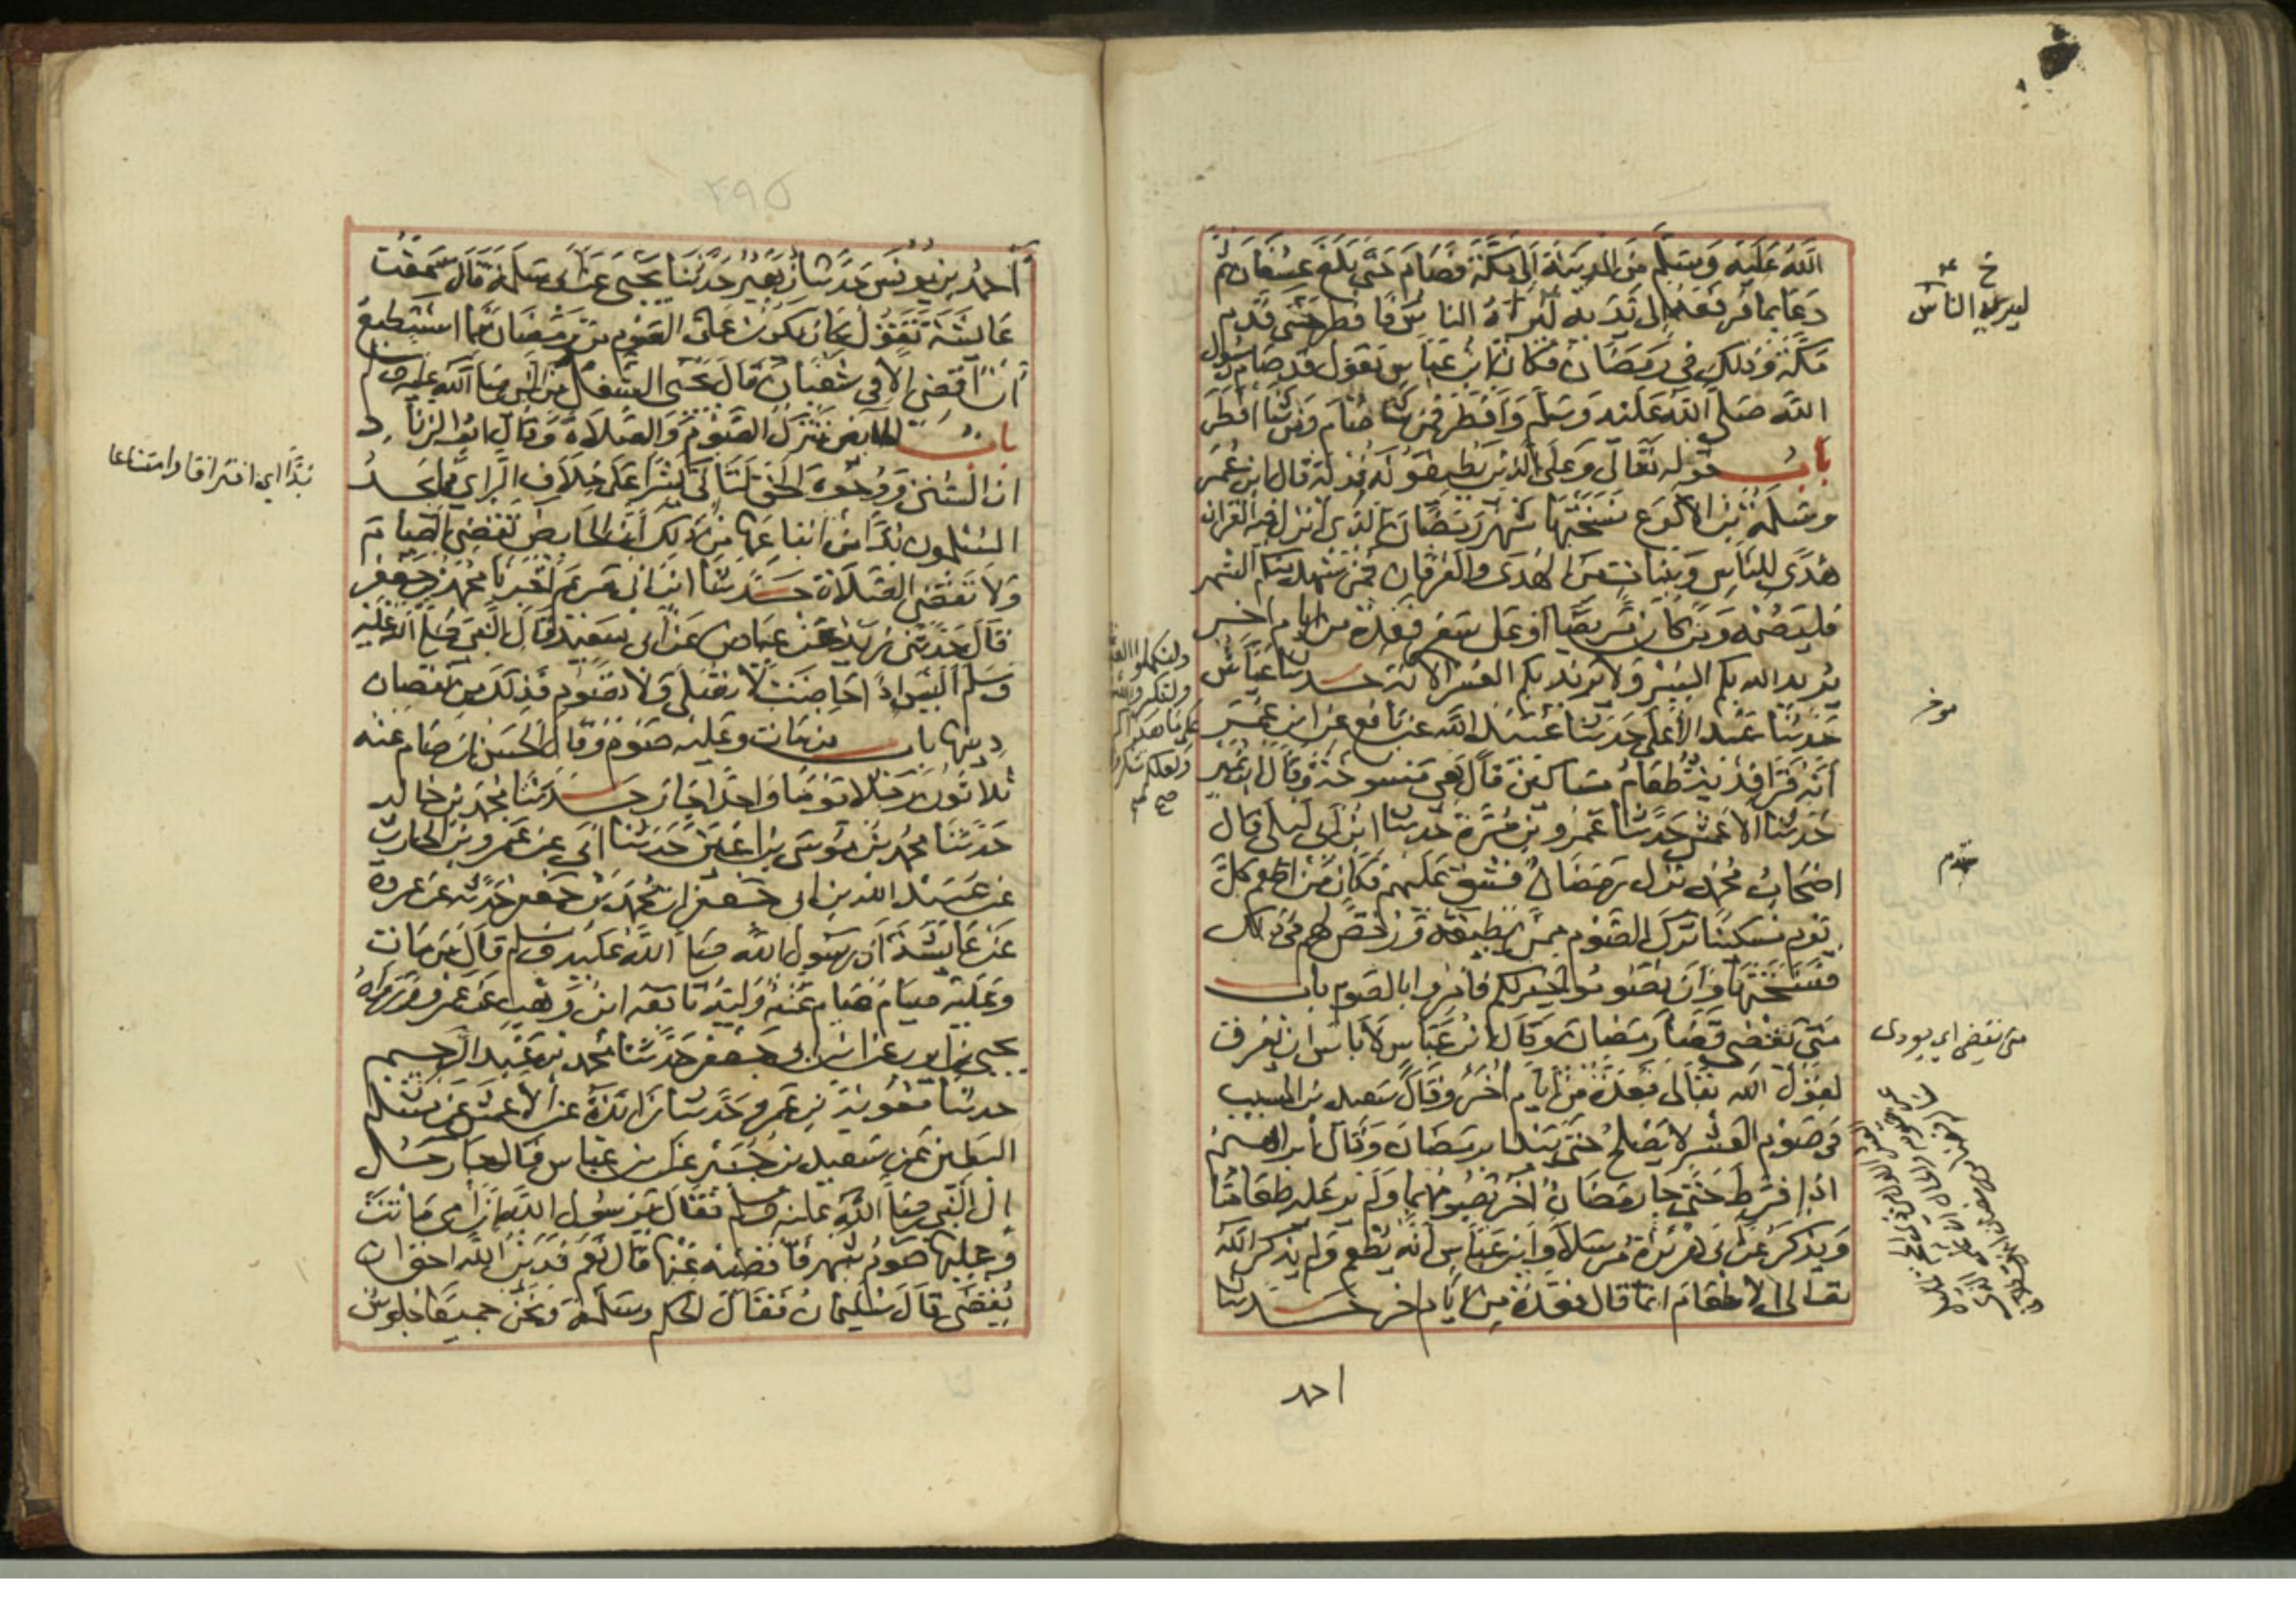 الله عليه وسلم من المدينة الى مكة فصام حتى بلغ عسفان ثم
دعا بما فرفعه الى يديه ليراه الناس فافطر حتى قدم
مكة وذلك في رمضان فكان ابن عباس يقول قد صام رسول
الله صلى الله عليه وسلم وافطر فمن شا صام ومن شا افطر
باب قوله تعالى وعلى الذين يطيقونه فدية قال ابن عمر
وسلمة بن الاكوع نسختها شهر رمضان الذي انزل فيه القران
هدى للناس وبينات من الهدى والفرقان فمن شهد منكم الشهر
فليصمه ومن كان مريضا او على سفر فعدة من ايام اخر
يريد الله بكم اليسر ولا يريد بكم العسر الاية حدثنا عياش
حدثنا عبد الاعلى حدثنا عبيد الله عن نافع عن ابن عمر
انه قرا فدية طعام مساكين قال هي منسوخة وقال ابن نمير
حدثنا الاعمش حدثنا عمرو بن مرة حدثنا ابن ابي ليلى قال
اصحاب محمد نزل رمضان فشق عليهم فكان من اطعم كل
يوم مسكينا ترك الصوم ممن يطيقه ورخص لهم في ذلك
فنسختها وان تصوموا خير لكم فامروا بالصوم باب
متى يقضي قضا رمضان وقال ابن عباس لا باس ان يفرق
لقول الله تعالى فعدة من ايام اخر وقال سعيد بن المسيب
في صوم العشر لا يصلح حتى يبدا برمضان وقال ابراهيم
اذا فرط حتى جا رمضان اخر يصومهما ولم ير عليه طعاما
ويذكر عن ابي هريرة مرسلا وابن عباس انه يطعم ولم يذكر الله
تعالى الاطعام انما قال فعدة من ايام اخر حدثنا
احمد
خ
ليريه الناس
موخر
مقدم
متى يقضي اي يودى
ولتكملوا العدة
ولتكبروا الله
على ما هداكم
ولعلكم تشكرون
صح
٢٩٥
احمد بن يونس حدثنا زهير حدثنا يحيى عن ابي سلمة قال سمعت
عايشة تقول كان يكون على الصوم من رمضان فما استطيع
ان اقضي الا في شعبان قال يحيى الشغل من النبي صلى الله عليه وسلم
باب الحايض تترك الصوم والصلاة وقال ابو الزناد
ان السنن ووجوه الحق لتاتي كثيرا على خلاف الراي فما يجد
المسلمون بدا من اتباعها من ذلك ان الحايض تقضي الصيام
ولا تقضي الصلاة حدثنا ابن ابي مريم اخبرنا محمد بن جعفر
قال حدثني زيد عن عياض عن ابي سعيد قال قال النبي صلى الله عليه
وسلم اليس اذا حاضت لا تصلي ولا تصوم فذلك من نقصان
دينها باب من مات وعليه صوم وقال الحسن ان صام عنه
ثلاثون رجلا يوما واحدا جاز حدثنا محمد بن خالد
حدثنا محمد بن موسى بن اعين حدثنا ابي عن عمرو بن الحارث
عن عبيد الله بن ابي جعفر ان محمد بن جعفر حدثه عن عروة
عن عايشة ان رسول الله صلى الله عليه وسلم قال من مات
وعليه صيام صام عنه وليه تابعه ابن وهب عن عمرو ورواه
يحيى بن ايوب عن ابن ابي جعفر حدثنا محمد بن عبد الرحيم
حدثنا معوية بن عمرو حدثنا زائدة عن الاعمش عن مسلم
البطين عن سعيد بن جبير عن ابن عباس قال جا رجل
الى النبي صلى الله عليه وسلم فقال يا رسول الله ان امي ماتت
وعليها صوم شهر فاقضيه عنها قال نعم فدين الله احق ان
يقضى قال سليمان فقال الحكم وسلمة ونحن جميعا جلوس
بدا اي افتراقا وامتناعا